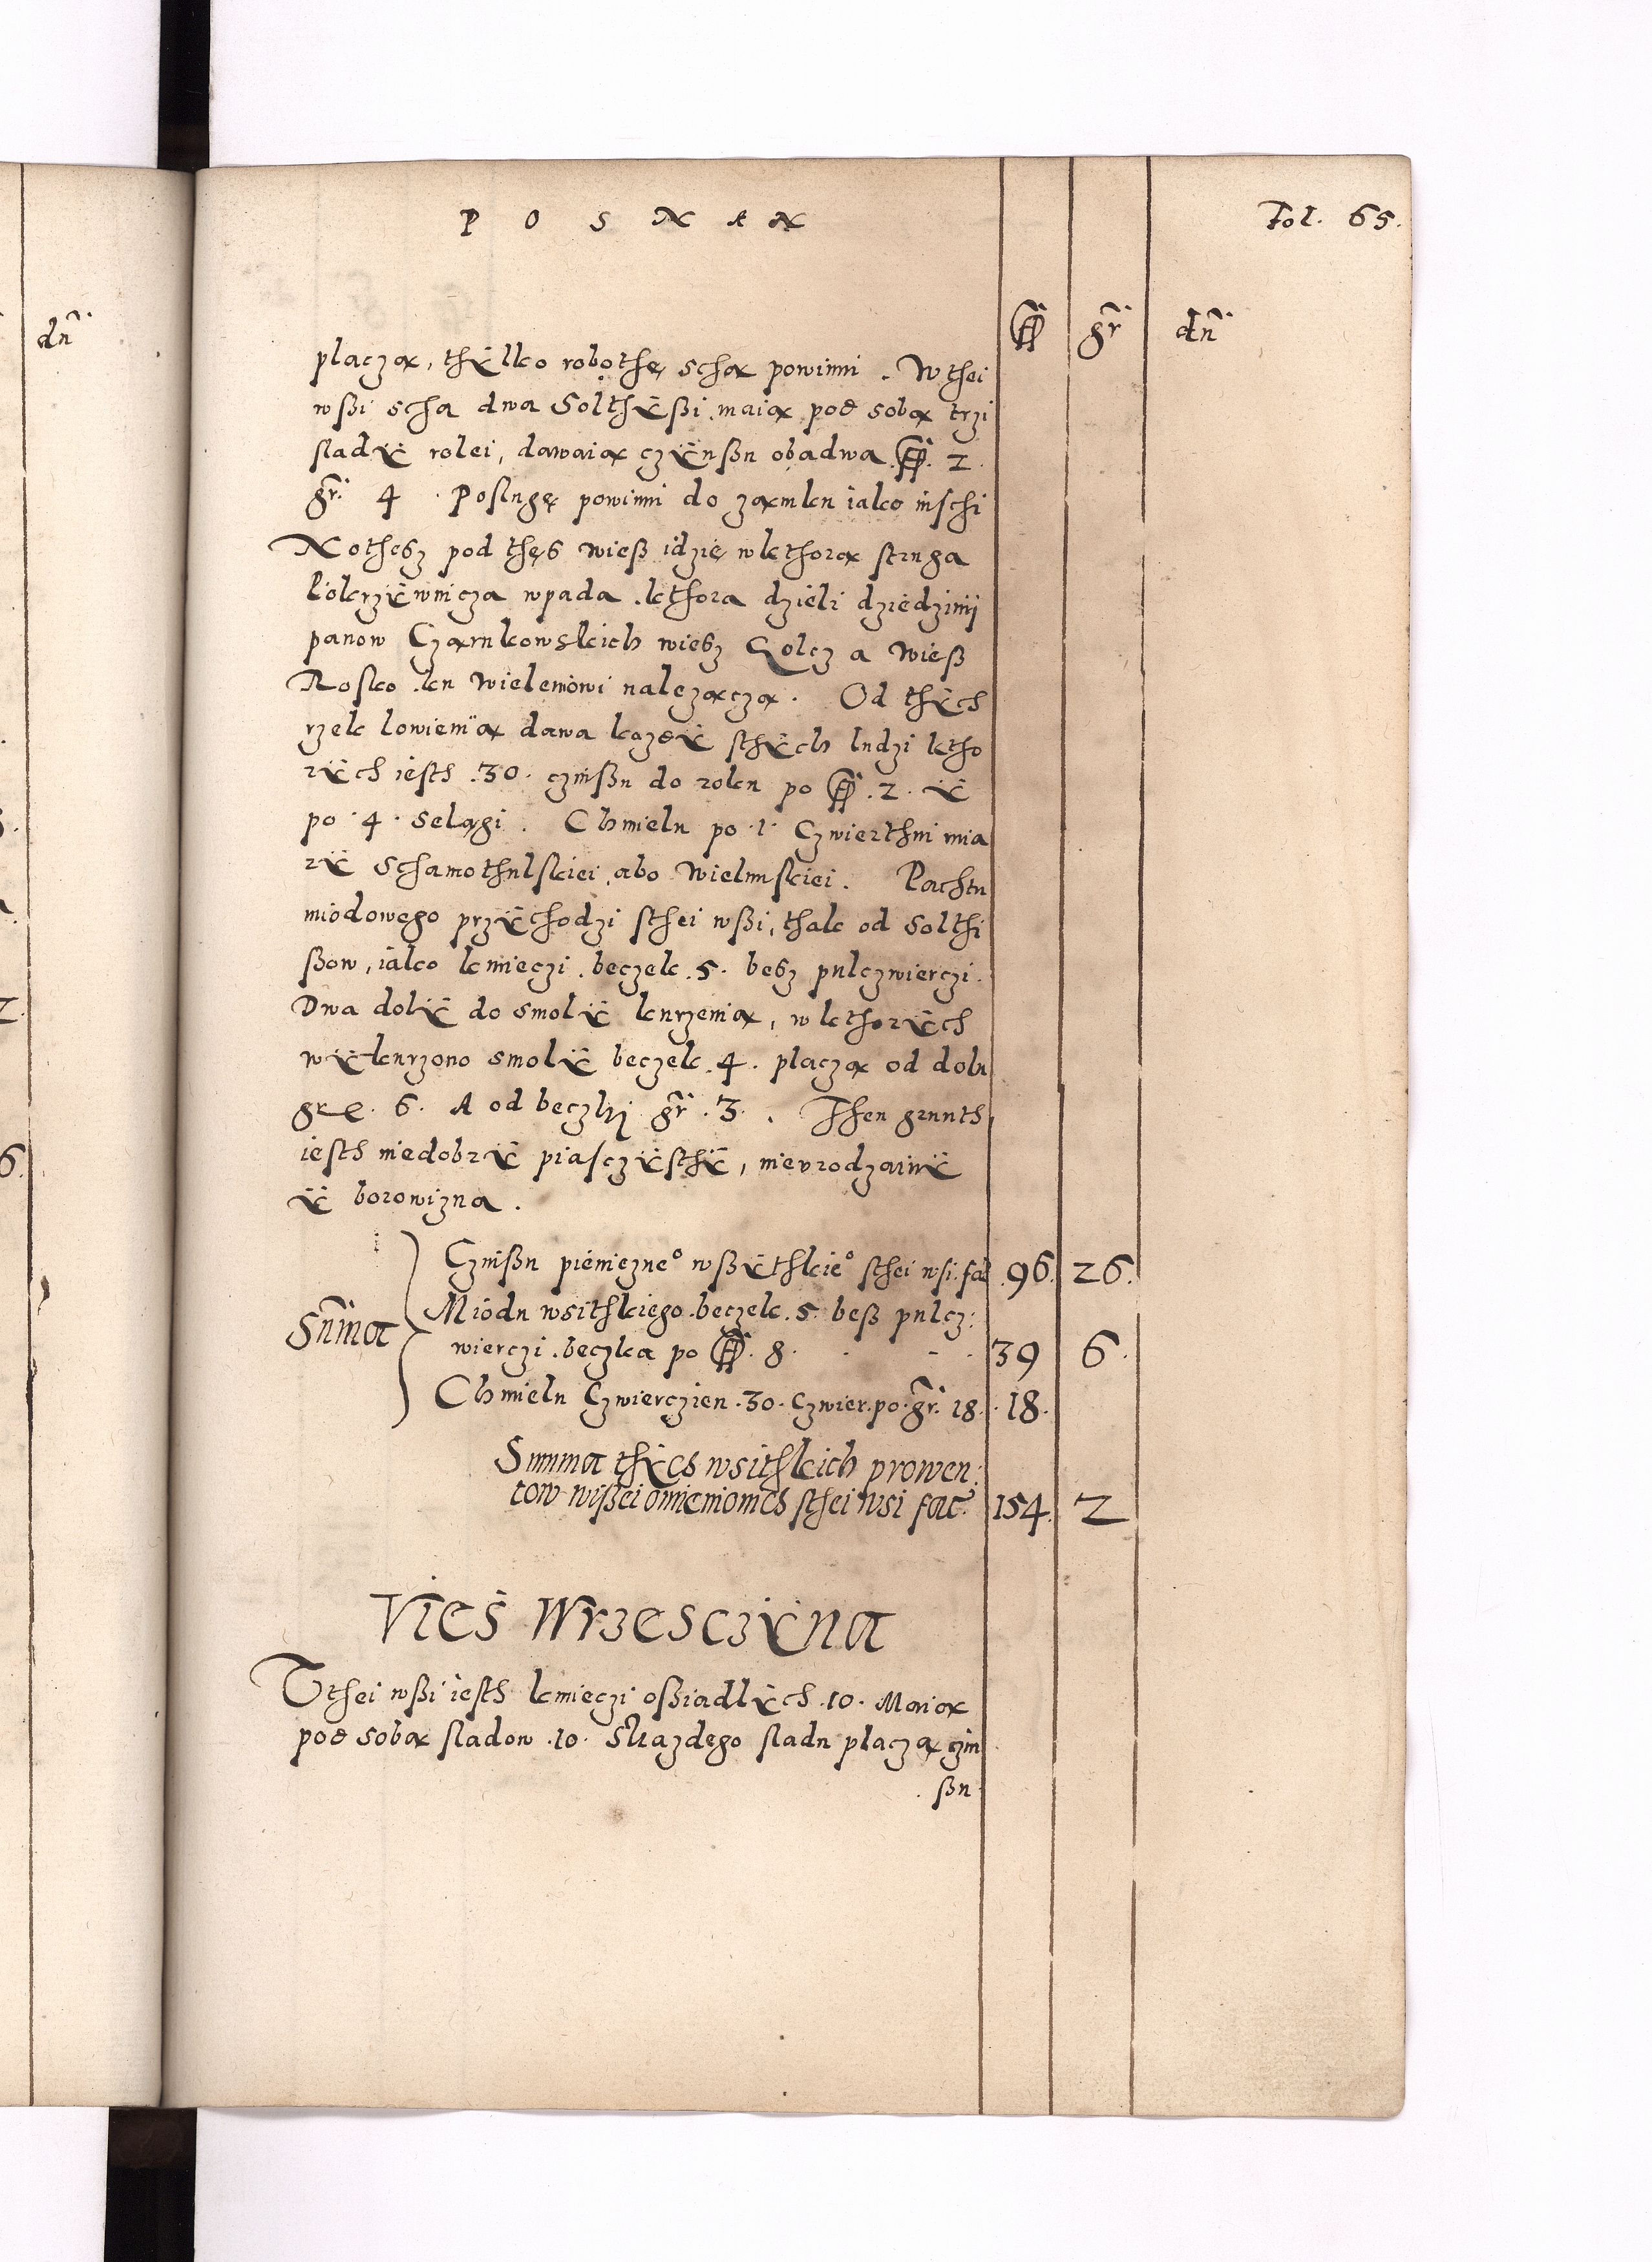 P O S N A N
Fol. 65.
fl gr dn
placzą, thÿlko robothę schą powinni. W thei
wßi scha dwa Solthÿßi maią pod sobą trzi
sladÿ rolei, dawaią czÿnßu obadwa fl. 2.
gr. 4. Poslugę powinni do zamku iako inschi
Nothesz pod thęs wieß idzie w kthorą struga
wpada kthora dzieli dziedzinÿ
panow Czarnkowskich wiesz Golcz a wieß
Rosko ku Wielenowi nalezączą. Od thÿch
rzek lowienią dawa kozdÿ sthÿch ludzi ktho
rÿch iesth .30. czinßu do roku po fl .2. ÿ
po .4. selągi. Chmielu po .1. Czwierthni mia
rÿ Schamothulskiei, abo Wielunskiei. Pachtu
miodowego przÿchodzi sthei wßi, thak od Solthi
ßow, iako kmieczi beczek .5. besz pulczwierczi.
Dwa dolÿ do smolÿ kurzenią, w kthorÿch
wÿkurzono smolÿ beczek .4. placzą od dolu
gr. 6. A od beczki gr .3. Then grunth
iesth niedobrÿ piasczÿsthÿ, nieurodzainÿ
ÿ borowizna.
Summa
Czinßu pieniezne° wßÿthkie° sthei wsi fac 96. 26.
Miodu wsithkiego beczek .5. beß pulcz:
wierczi beczka po fl. 8. 39 6.
Chmielu Czwierczien .30. Czwier. po. gr. 18. 18.
Summa thÿch wsithkich prowen:
tow wißei omienionich sthei wsi fac. 154. 2
Vies Wrzesczÿna
W thei wßi iesth kmieczi oßiadlÿch .10. Maią
pod sobą sladow .10. Skazdego sladu placzą czin
ßu
dn